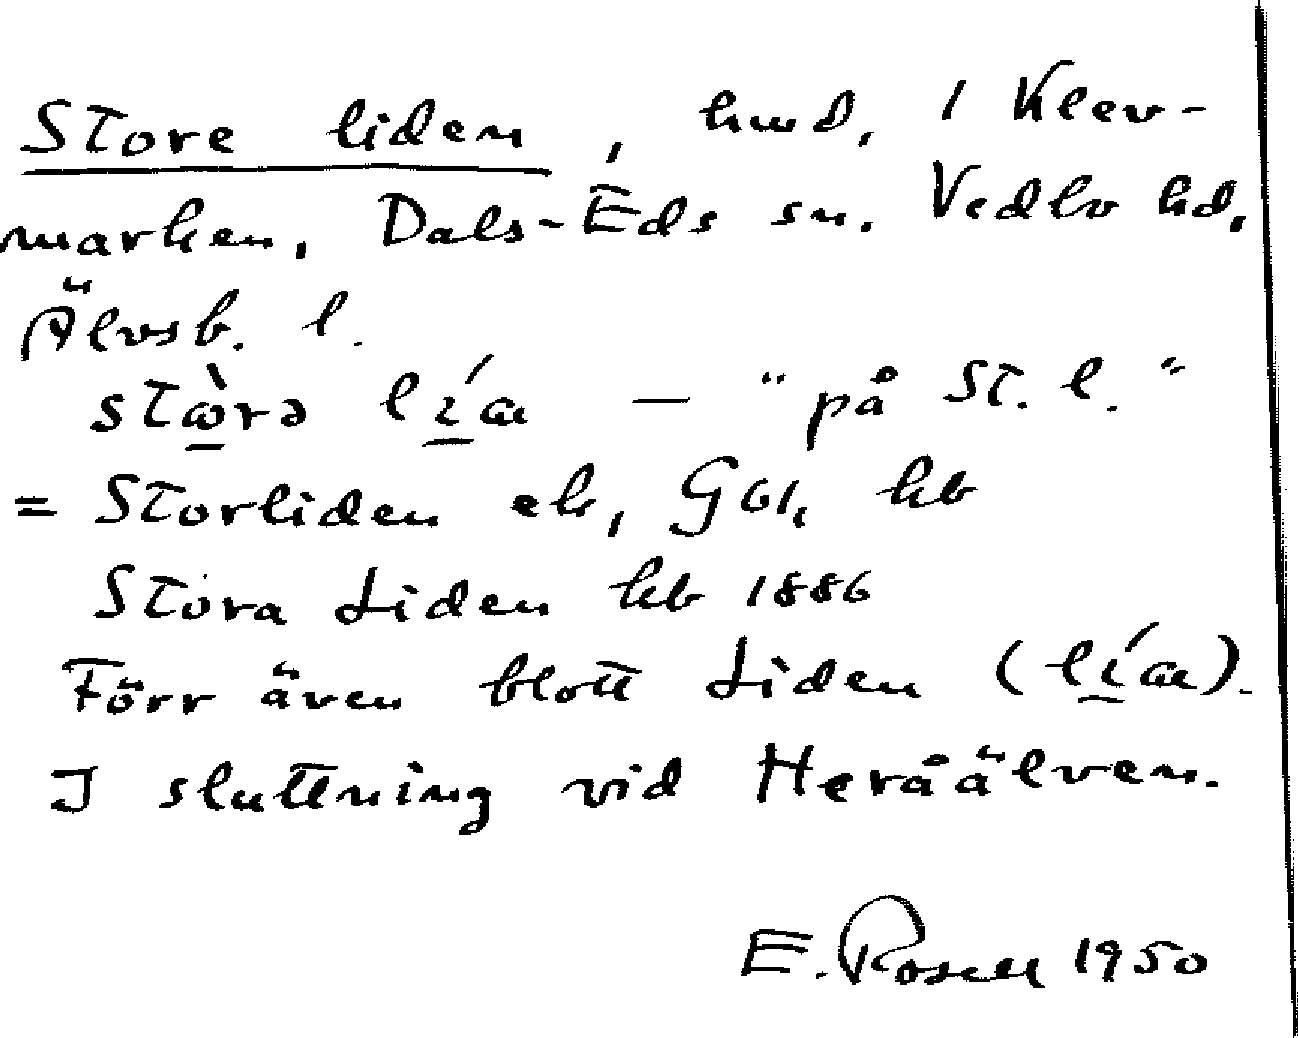 Store liden, hmd, i Klev-
marken, Dals-Eds sn. Vedbo hd,
Älvsb. l.
stɷ̀rə lía — "på St. l."
= Storliden ek, Gbl, kb
Stora Liden kb 1886
Förr även blott Liden (lía).
I sluttning vid Heråälven.
E. Rosell 1950